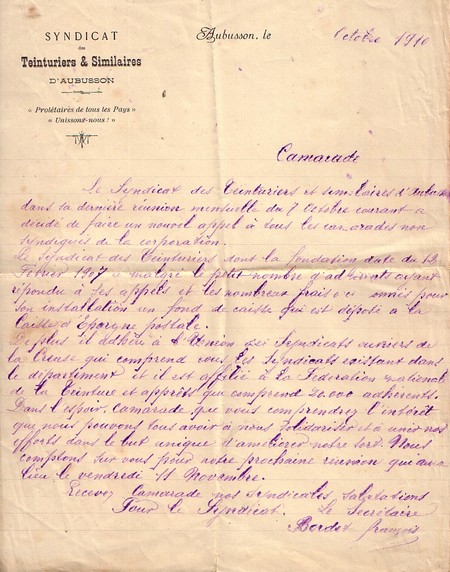 SYNDICAT
des
Teinturiers & Similaires
D'AUBUSSON
« Prolétaires de tous les Pays »
« Unissons-nous ! »
Aubusson, le Octobre 1910
Camarade
Le Syndicat des Teinturiers et similaires d'Aubusson
dans sa dernière réunion mensuelle du 7 Octobre courant a
décidé de faire un nouvel appel à tous les camarades non
syndiqués de la corporation.
Le Syndicat des Teinturiers dont la fondation date du 12
Février 1907 a malgré le petit nombre d'adhérents ayant
répondu à ses appels et les nombreux frais pour
son installation un fond de caisse qui est déposé a la
Caisse d'Epargne postale.
De plus il adhère à l'Union des Syndicats ouvriers de
la Creuse qui comprend tous les Syndicats existant dans
le département et il est affilié à la Fédération nationale
de la Teinture et apprêts que comprend 20.000 adhérents.
Dans l'espoir, Camarade, que vous comprendrez l'intérêt
que nous pouvons tous avoir à nous solidariser et à unir nos
efforts dans le but unique d'améliorer notre sort. Nous
comptons sur vous pour notre prochaine réunion qui aura
lieu le vendredi 11 Novembre.
Recevez Camarade nos Syndicales salutations
Pour le Syndicat. Le Secrétaire
Bordet françois